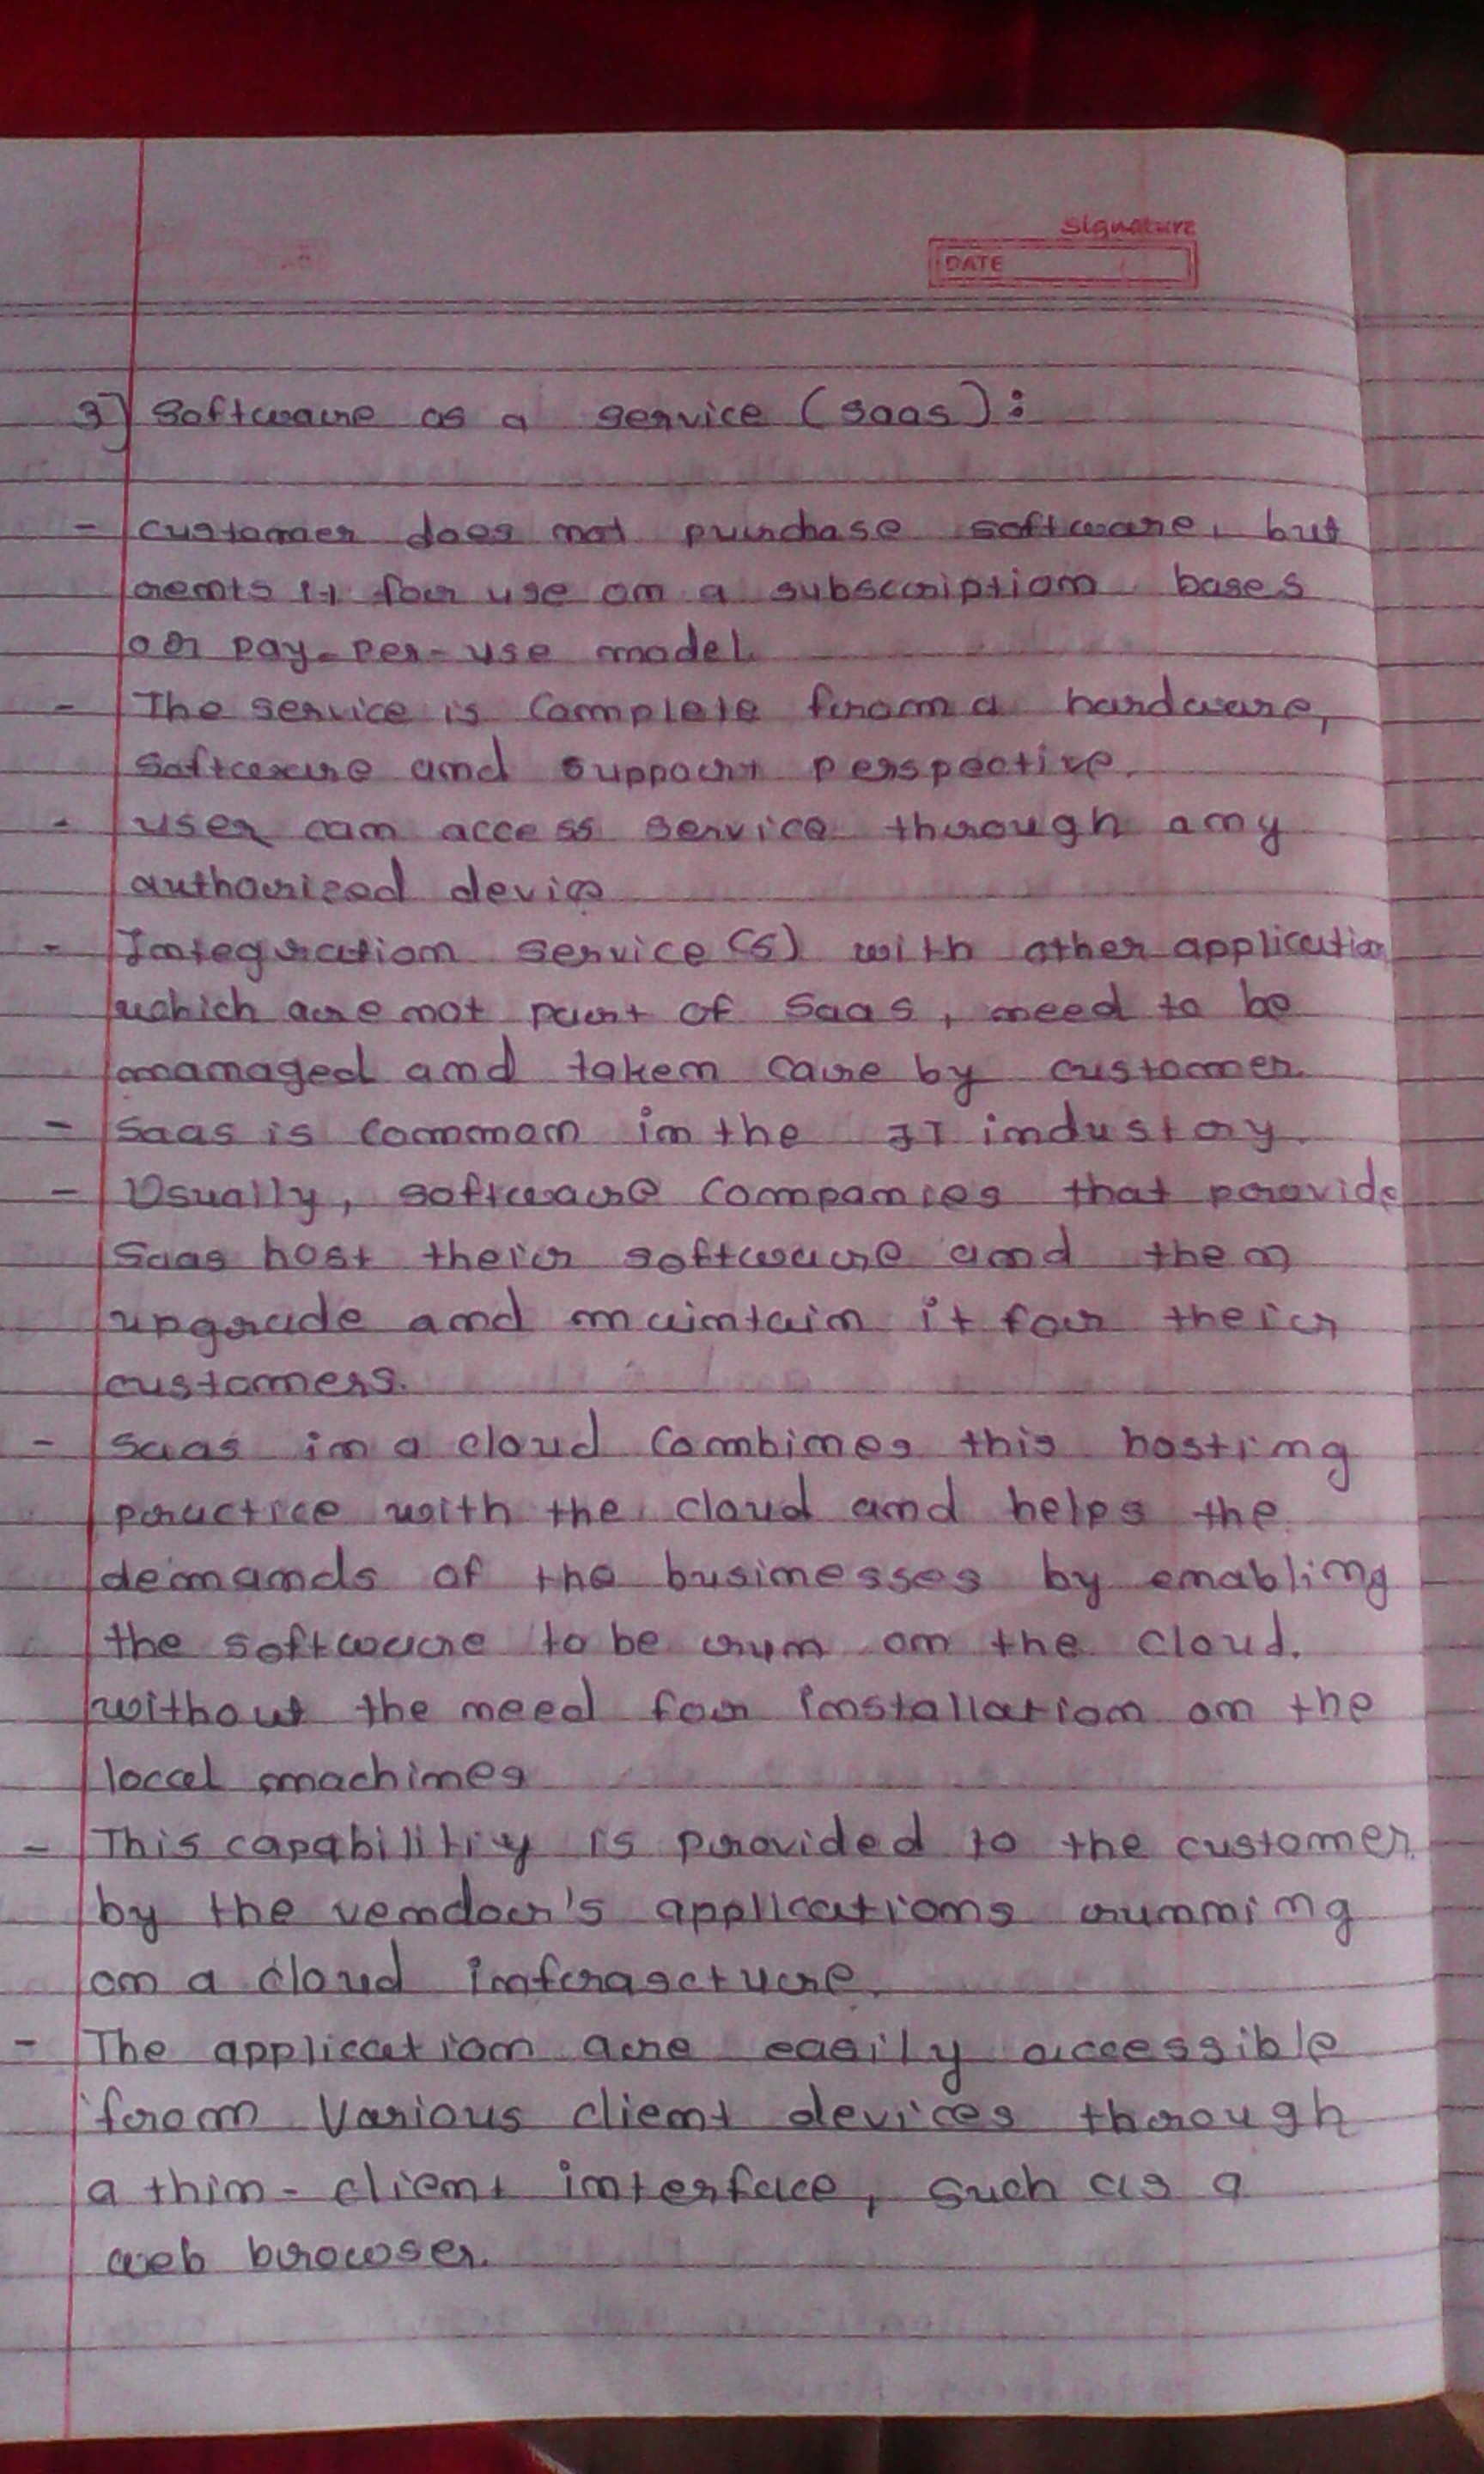 Signature
DATE
3] Software as a service (saas):
- customer does not purchase software, but
rents it for use on a subscription bases
or pay-per-use model.
- The service is Complete from a hardware,
Software and support perspective.
- user can access service through any
authorized device
- Integration service(s) with other application
which are not part of Saas, need to be
managed and taken care by customer.
- Saas is common in the IT industry.
- Usually, software Companies that provide
Saas host their software and then
upgrade and maintain it for their
customers.
- Saas in a cloud Combines this hosting
practice with the cloud and helps the
demands of the businesses by enabling
the software to be run on the cloud.
without the need for installation on the
local machines
- This capability is provided to the customer
by the vendor's applications running
on a cloud infrascture.
- The application are easily accessible
from Various client devices through
a thin-client interface, such as a
web browser.